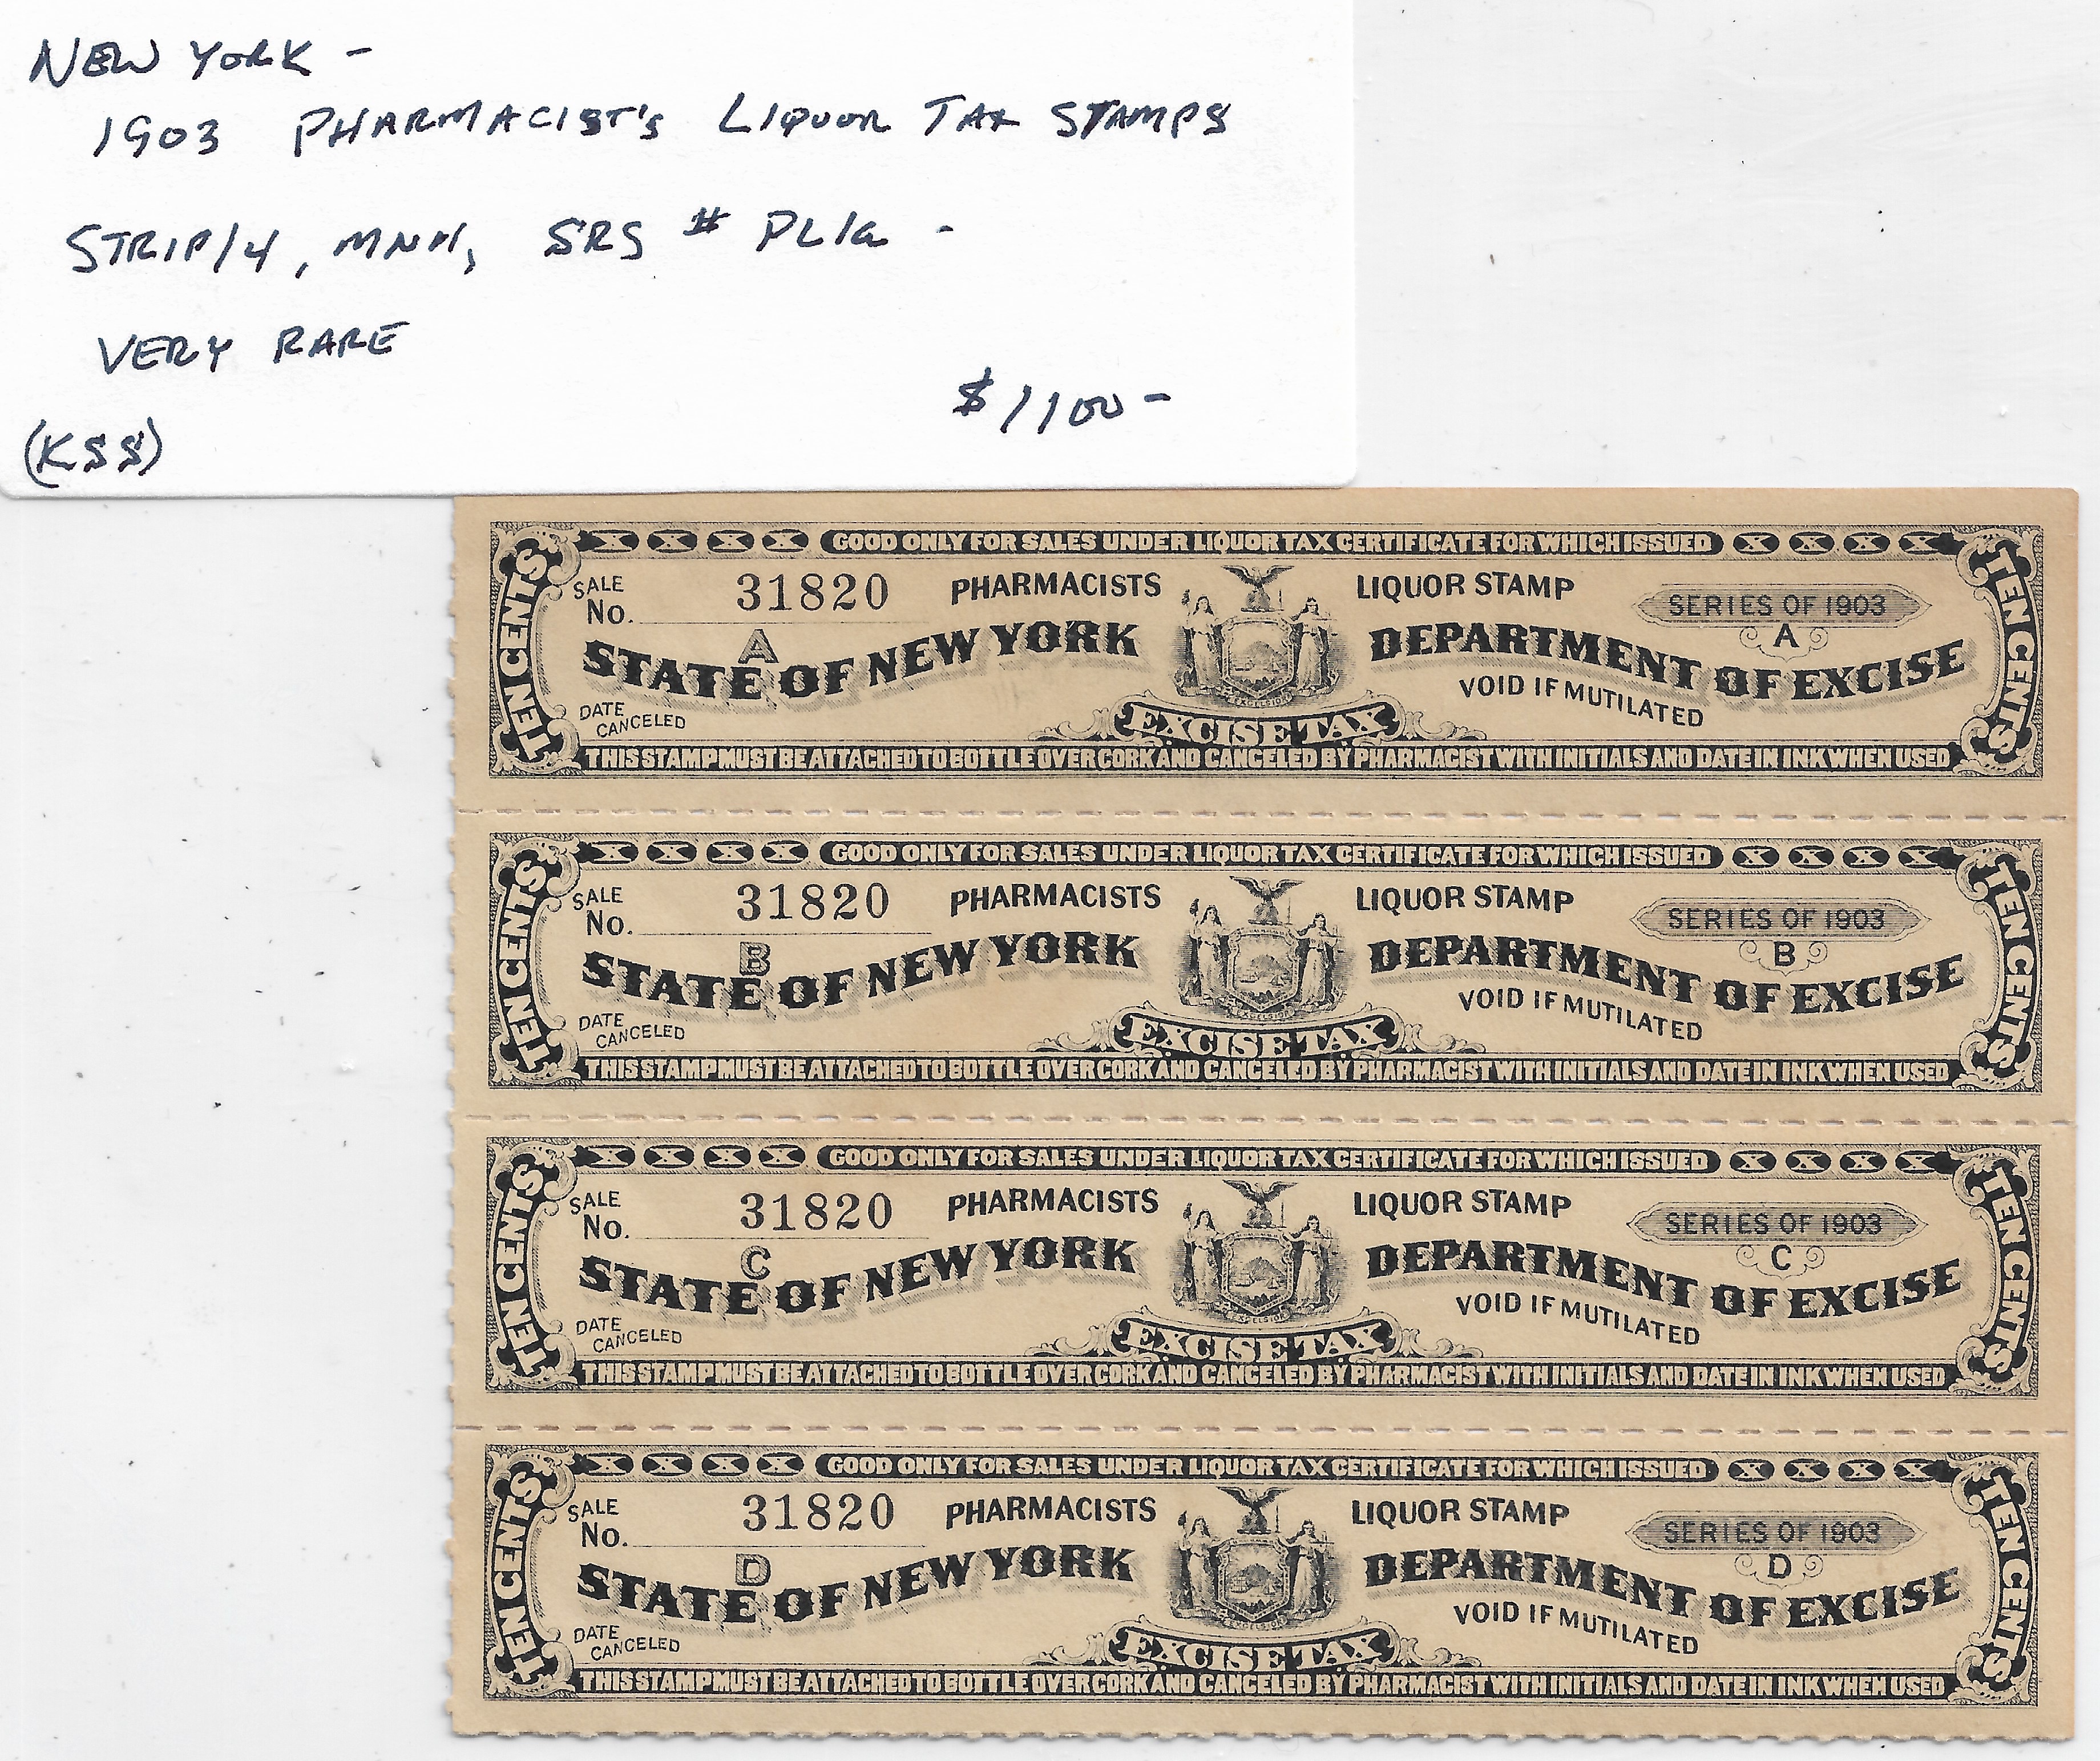 NEW YORK -
1903 PHARMACIST'S LIQUOR TAX STAMPS
STRIP/4, MNH, SRS # PL1a -
VERY RARE
$1100-
(KSS)
X X X X GOOD ONLY FOR SALES UNDER LIQUOR TAX CERTIFICATE FOR WHICH ISSUED X X X X
TEN CENTS
SALE No. 31820 PHARMACISTS LIQUOR STAMP SERIES OF 1903
A A
STATE OF NEW YORK DEPARTMENT OF EXCISE
EXCELSIOR
VOID IF MUTILATED
DATE CANCELED EXCISE TAX
TEN CENTS
THIS STAMP MUST BE ATTACHED TO BOTTLE OVER CORK AND CANCELED BY PHARMACIST WITH INITIALS AND DATE IN INK WHEN USED
X X X X GOOD ONLY FOR SALES UNDER LIQUOR TAX CERTIFICATE FOR WHICH ISSUED X X X X
TEN CENTS
SALE No. 31820 PHARMACISTS LIQUOR STAMP SERIES OF 1903
B B
STATE OF NEW YORK DEPARTMENT OF EXCISE
EXCELSIOR
VOID IF MUTILATED
DATE CANCELED EXCISE TAX
TEN CENTS
THIS STAMP MUST BE ATTACHED TO BOTTLE OVER CORK AND CANCELED BY PHARMACIST WITH INITIALS AND DATE IN INK WHEN USED
X X X X GOOD ONLY FOR SALES UNDER LIQUOR TAX CERTIFICATE FOR WHICH ISSUED X X X X
TEN CENTS
SALE No. 31820 PHARMACISTS LIQUOR STAMP SERIES OF 1903
C C
STATE OF NEW YORK DEPARTMENT OF EXCISE
EXCELSIOR
VOID IF MUTILATED
DATE CANCELED EXCISE TAX
TEN CENTS
THIS STAMP MUST BE ATTACHED TO BOTTLE OVER CORK AND CANCELED BY PHARMACIST WITH INITIALS AND DATE IN INK WHEN USED
X X X X GOOD ONLY FOR SALES UNDER LIQUOR TAX CERTIFICATE FOR WHICH ISSUED X X X X
TEN CENTS
SALE No. 31820 PHARMACISTS LIQUOR STAMP SERIES OF 1903
D D
STATE OF NEW YORK DEPARTMENT OF EXCISE
EXCELSIOR
VOID IF MUTILATED
DATE CANCELED EXCISE TAX
TEN CENTS
THIS STAMP MUST BE ATTACHED TO BOTTLE OVER CORK AND CANCELED BY PHARMACIST WITH INITIALS AND DATE IN INK WHEN USED